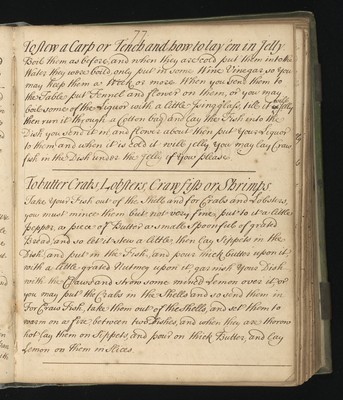 77
To stew a Carp or Tench and how to lay em in Jelly
Boil them as before, and when they are cold put them into the
Water they were boild, only put in some Wine Vinegar so you
may keep them a week or more. When you send them to
the Table, put Fennel and flower on them, or you may
boil some of the Liquor with a little Isinglass, till it
then run it through a Cotton bag and lay the Fish into the
Dish you send it in and flower about them put your Liquor
to them and when it is cold it will jelly you may lay Craw
fish in the Dish under the Jelly if you please
To butter Crabs, Lobsters, Crawfish or Shrimps
Take your Fish out of the Shells and for Crabs and Lobsters,
you must mince them but not very fine, put to it a little
pepper, a piece of Butter a smaller spoonful of grated
Bread, and so let it stew a little, then lay Sippets in the
Dish, and put in the Fish, and pour thick butter upon it,
with a little grated Nutmeg upon it, garnish your Dish
with the Claws and strow some minced Lemon over it, or
you may put the Crabs in the Shells and so send them in
For Craw Fish, take them out of the Shells, and set them to
warm on a fire between two Dishes, and when they are thorow
hot lay them on Sippets, and pour on thick Butter, and lay
Lemon on them in Slices